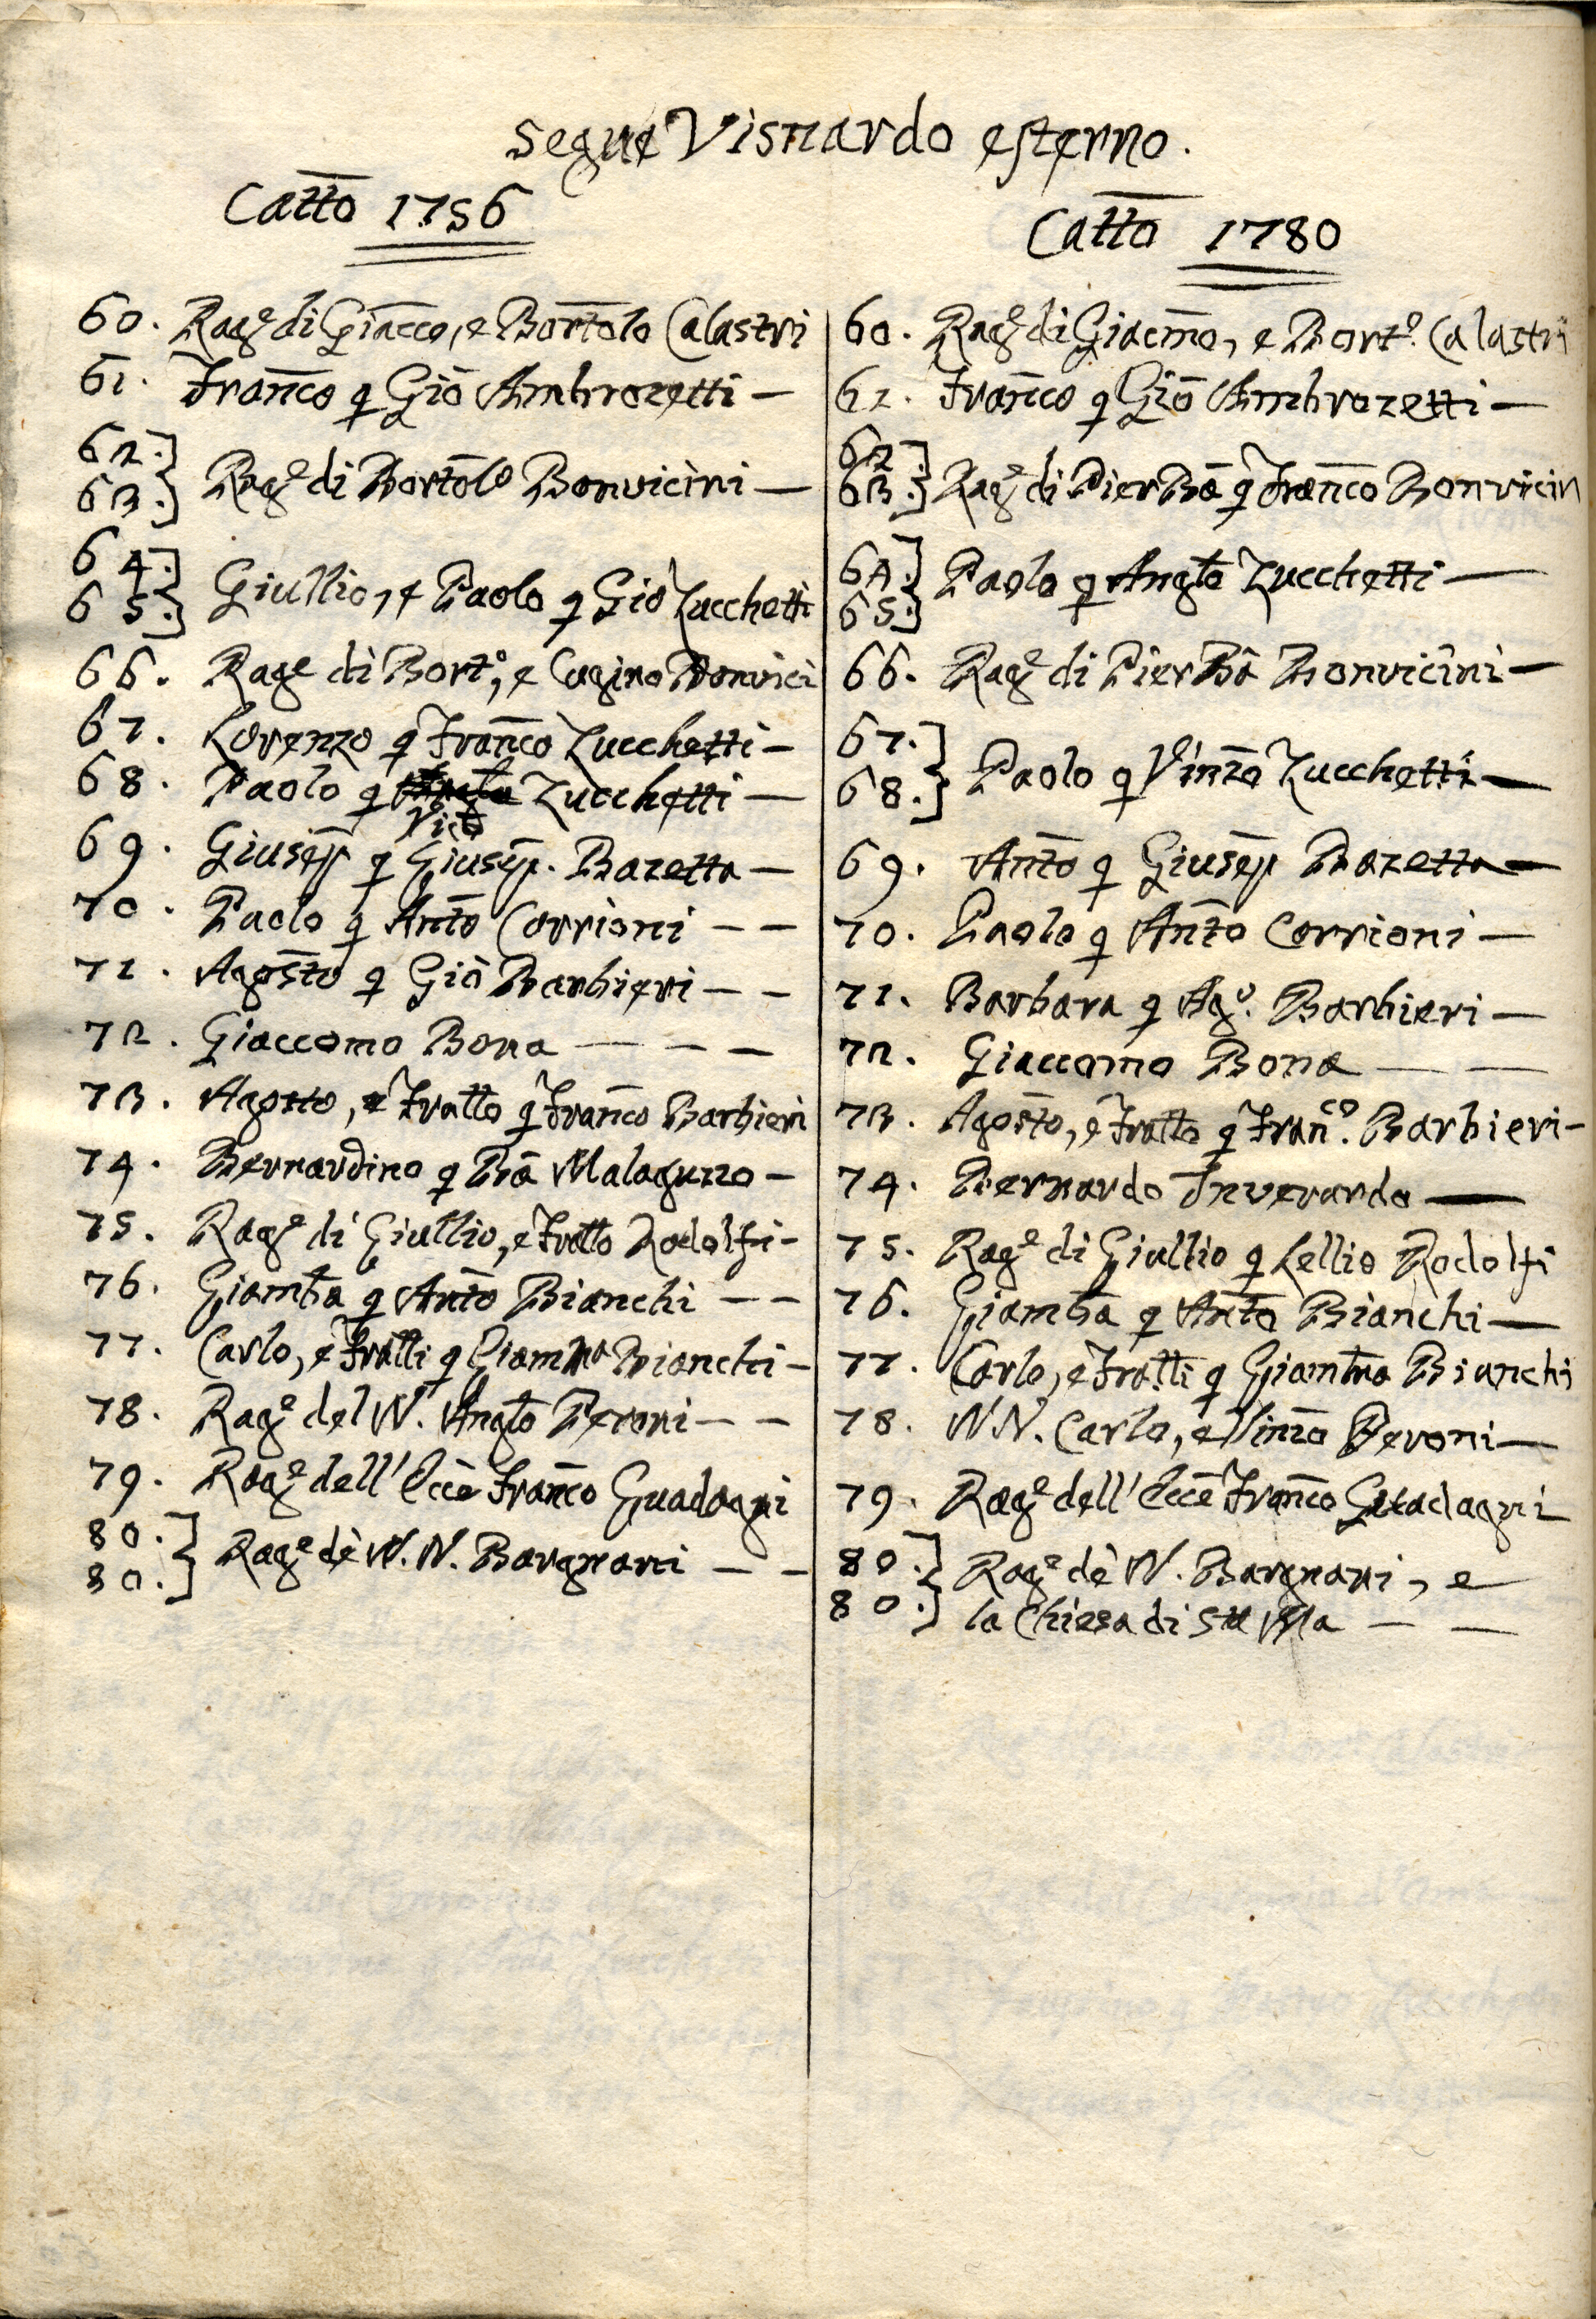 segue Visnardo esterno.
Catto 1756
60. Rag.e di Giacco, e Bortolo Calastri
61. Franco q Gio Ambrozetti —
62.]
63.] Rag.e di Bortolo Bonvicini —
64.]
65.] Giullio, e Paolo q Gio Zucchetti
66. Rage di Bort.o, e Cugino Bonvici
67. Lorenzo q Franco Zucchetti —
68. Paolo q Zucchetti —
69. Giusepp q Giusepp. Bazetta —
70. Paolo q Anto Corrioni — —
71. Agosto q Giò Barbieri — —
72. Giaccomo Bona — — —
73. Agosto, e Fratto q Franco Barbieri
74. Bernardino q Ba Malaguzzo —
75. Rag.e di Giullio, e Fratto Rodolfi —
76. Giamba q Anto Bianchi — —
77. Carlo, e Fratti q Giamba Bianchi —
78. Rag.e del N. Anglo Peroni — —
79. Rag.e dell' Ecce Franco Guadagni
80.]
80.] Rag.e dè N. N. Bargnani — —
Catto 1780
60. Rag.e di Giacmo, e Bort.o Calastri
61. Franco q Gio Ambrozetti —
62.]
63.] Rag.e di Pier Ba q Franco Bonvicin
64.]
65.] Paolo q Anglo Zucchetti —
66. Rag.e di Pier Ba Bonvicini —
67.]
68.] Paolo q Vinzo Zucchetti —
69. Anto q Giusepp Bazetta —
70. Paolo q Anto Corrioni —
71. Barbara q Ag.o Barbieri —
72. Giaccomo Bona — —
73. Agosto, e Fratto q Fran.co Barbieri —
74. Bernardo Inverardo —
75. Rag.e di Giullio q Lellio Rodolfi
76. Giamba q Anto Bianchi —
77. Carlo, e Fratti q Giamba Bianchi
78. N N. Carlo, e Vinzo Peroni —
79. Rag.e dell' Ecce Franco Guadagni
80.]
80.] Rag.e dè N. Bargnani, e
la Chiesa di Sta Ma — —